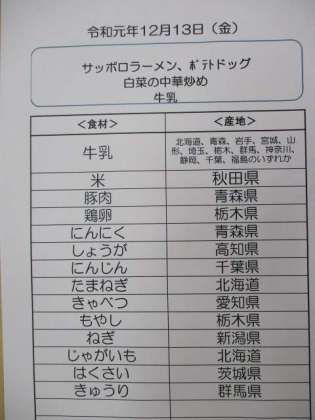 令和元年12月13日（金）
サッポロラーメン、ﾎﾟﾃﾄドッグ
白菜の中華炒め
牛乳
＜食材＞ ＜産地＞
牛乳 北海道、青森、岩手、宮城、山
形、埼玉、栃木、群馬、神奈川、
静岡、千葉、福島のいずれか
米 秋田県
豚肉 青森県
鶏卵 栃木県
にんにく 青森県
しょうが 高知県
にんじん 千葉県
たまねぎ 北海道
きゃべつ 愛知県
もやし 栃木県
ねぎ 新潟県
じゃがいも 北海道
はくさい 茨城県
きゅうり 群馬県